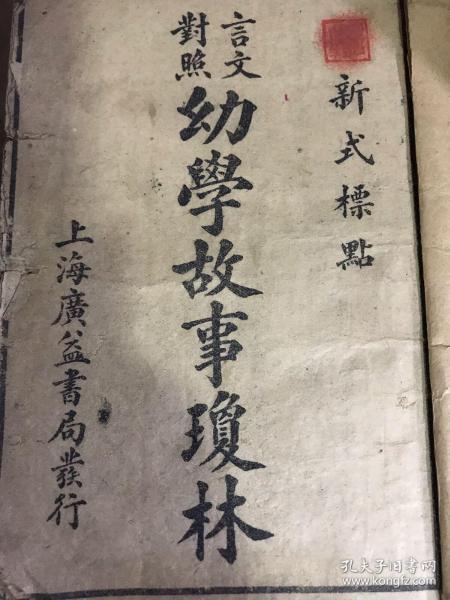 新式標點
言文
對照
幼學故事瓊林
上海廣益書局發行
孔夫子旧书网
www.kongfz.com